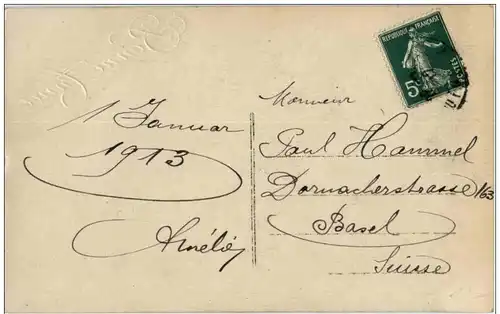 Bonne Année
1 Januar
1913
Amélie
REPUBLIQUE FRANÇAISE
POSTES
5c
Monsieur
Paul Hammel
Dornacherstrasse 163
Basel
Suisse